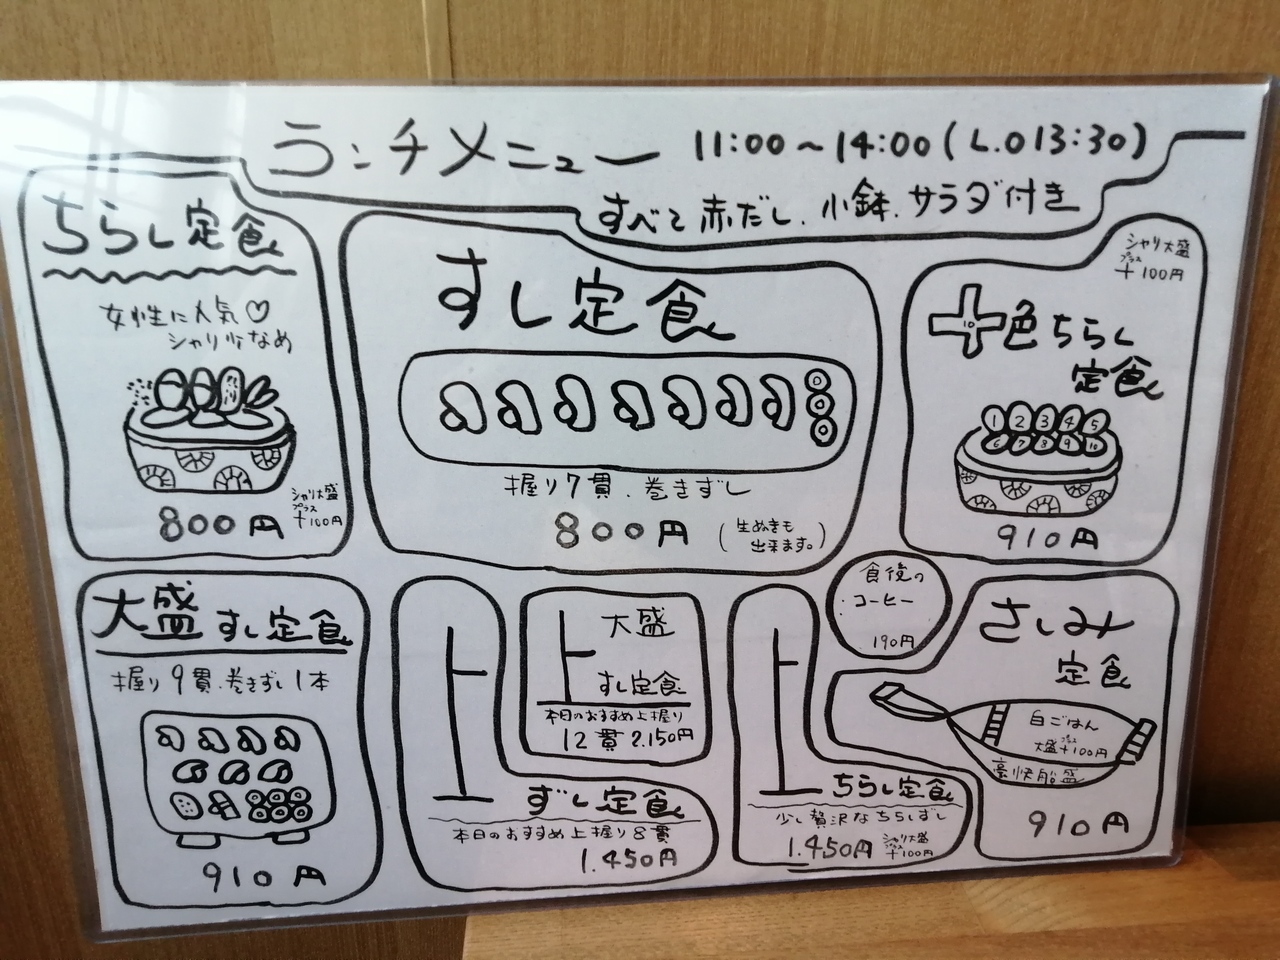 ランチメニュー 11:00～14:00(L.O 13:30)
すべて赤だし、小鉢、サラダ付き
ちらし定食
女性に人気♡
シャリ少なめ
800円
シャリ大盛
プラス
+100円
すし定食
握り7貫、巻きずし
800円
(生ぬきも
出来ます。)
シャリ大盛
プラス
+100円
十色ちらし
10
定食
1 2 3 4 5
6 7 8 9 10
910円
大盛すし定食
握り9貫、巻きずし1本
910円
上ずし定食
本日のおすすめ上握り8貫
1.450円
上大盛
すし定食
本日のおすすめ上握り
12貫 2.150円
上ちらし定食
少し贅沢なちらしずし
1.450円
シャリ大盛
プラス
+100円
食後の
コーヒー
190円
さしみ
定食
白ごはん
プラス
大盛+100円
豪快船盛
910円